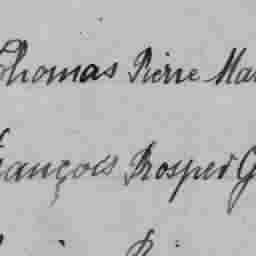 Thomas Pierre Ma
François Prosper G